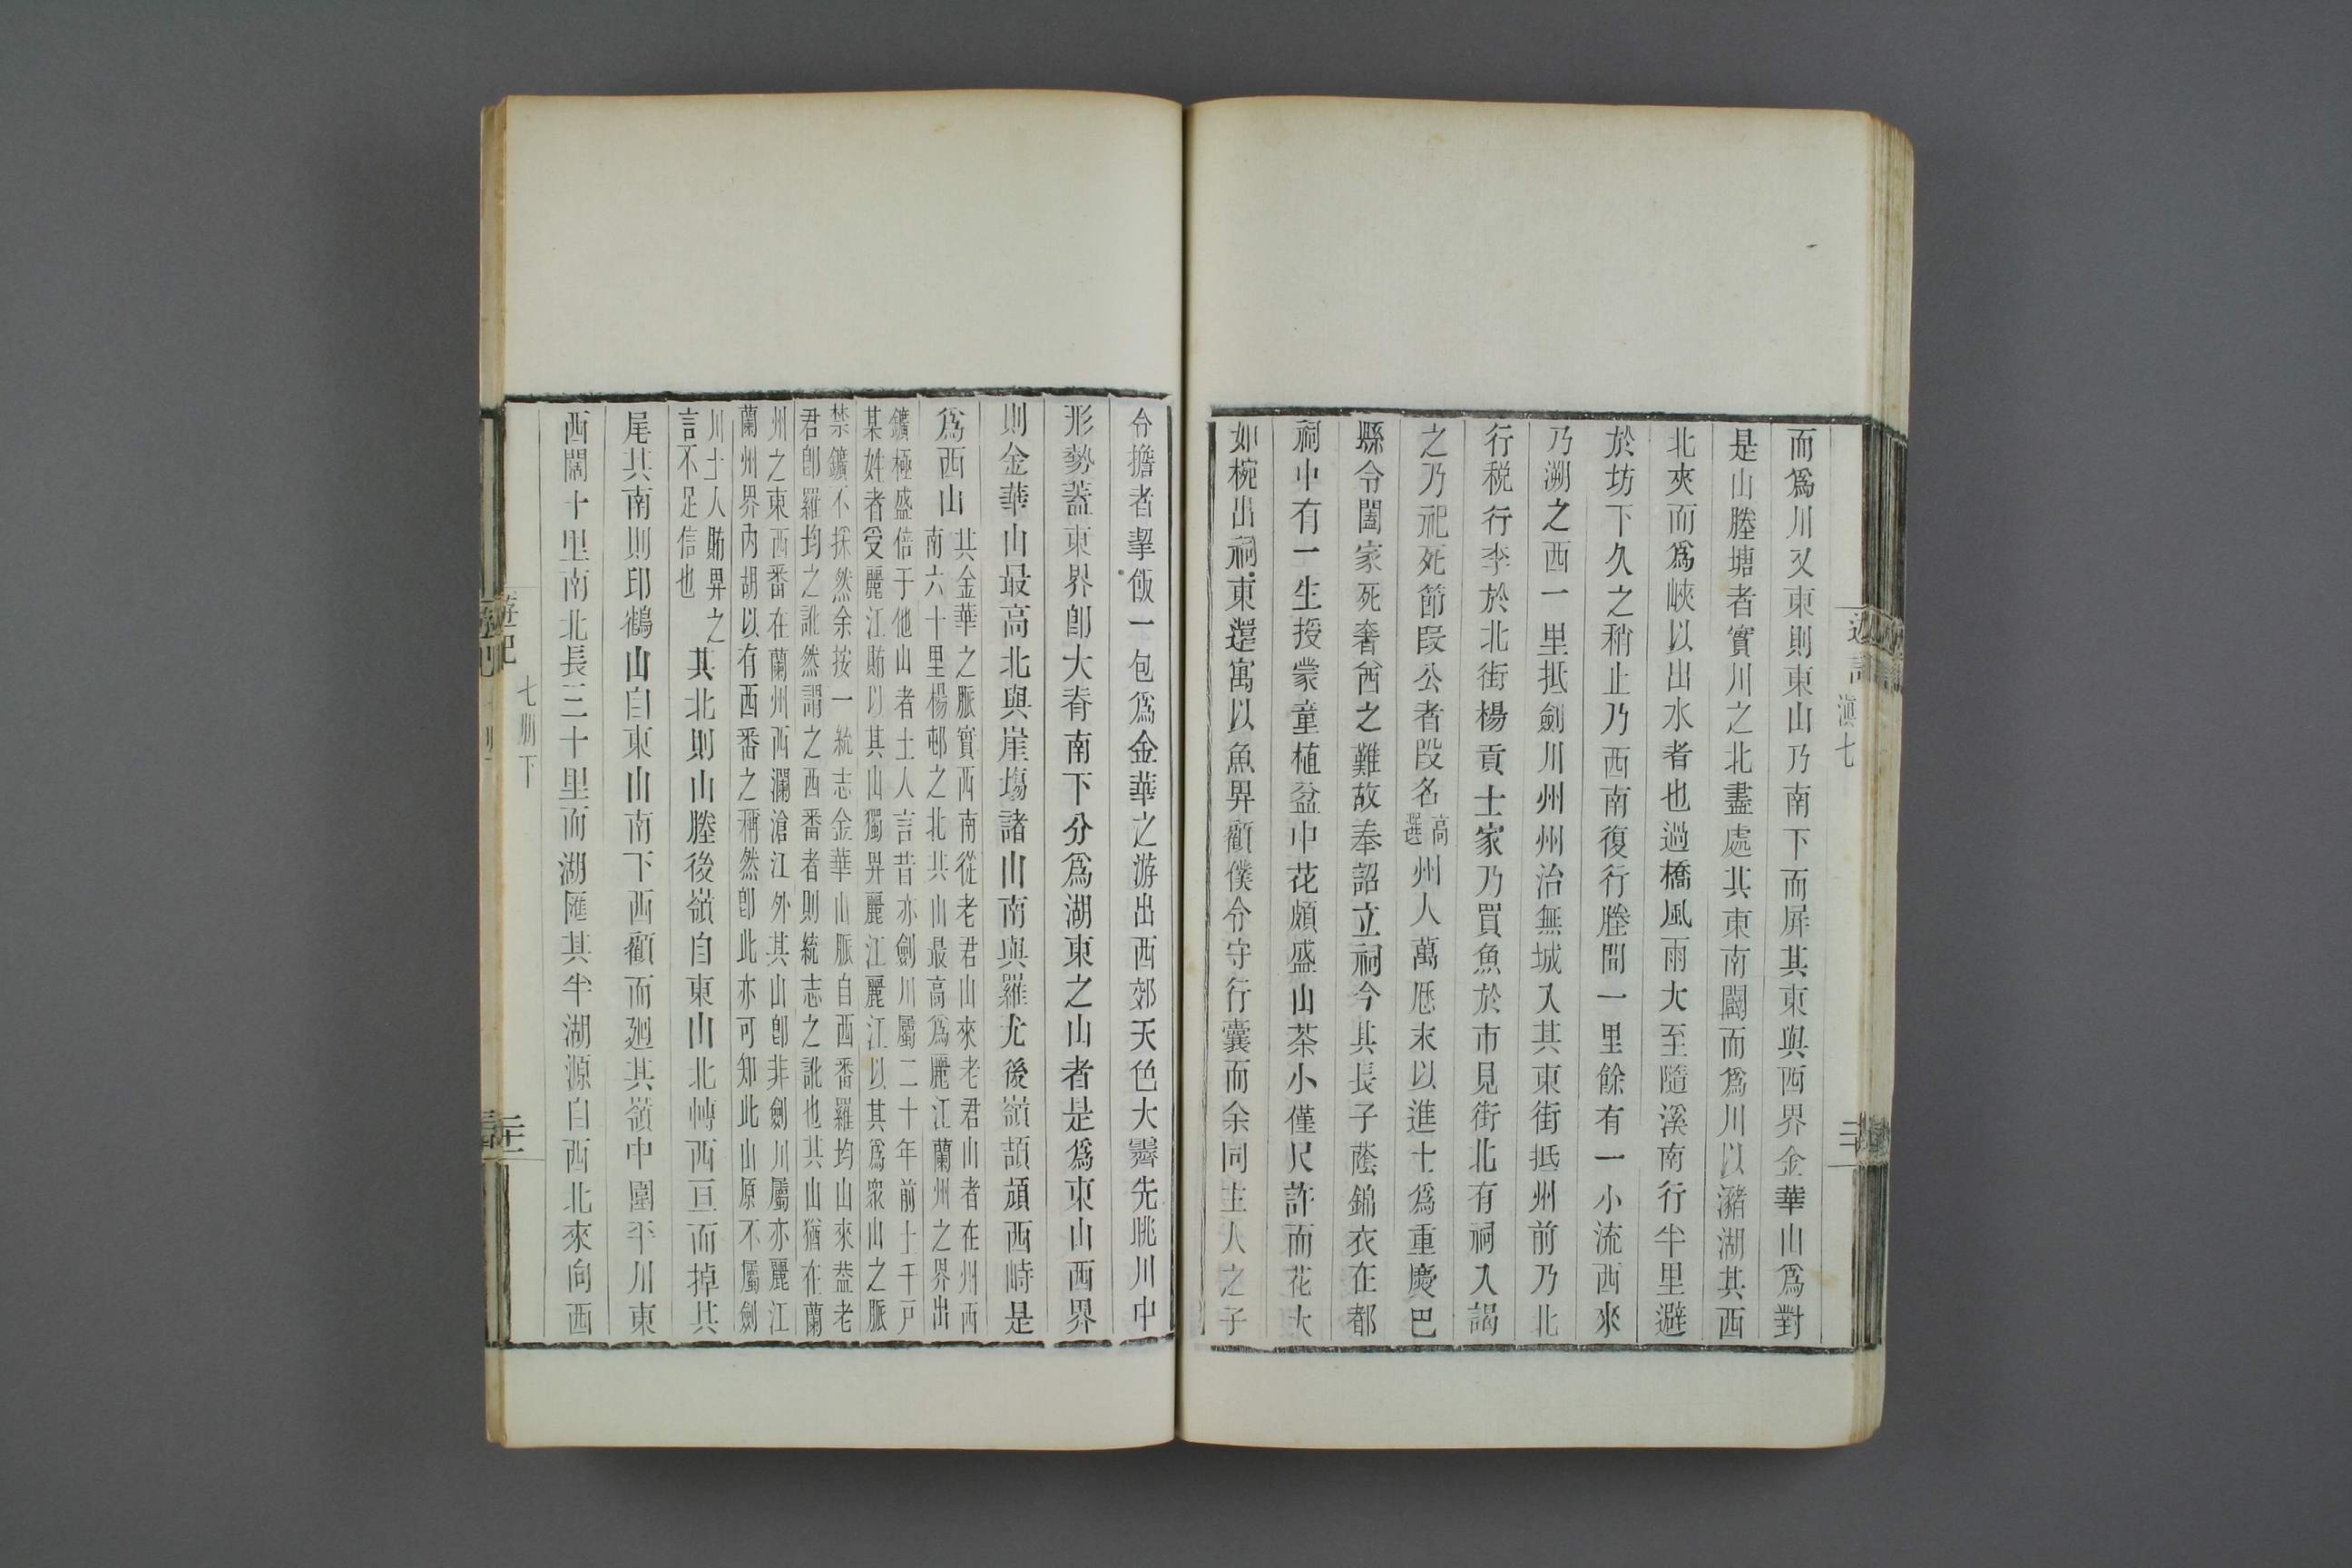 遊記
滇七
而爲川又東則東山乃南下而屏其東與西界金華山爲對
是山塍塘者實川之北盡處其東南闢而爲川以瀦湖其西
北夾而爲峽以出水者也過橋風雨大至隨溪南行半里避
於坊下久之稍止乃西南復行塍間一里餘有一小流西來
乃溯之西一里抵劍川州州治無城入其東街抵州前乃北
行税行李於北街楊貢士家乃買魚於市見街北有祠入謁
之乃祀死節段公者段名高選州人萬厯末以進士爲重慶巴
縣令闔家死奢酋之難故奉詔立祠今其長子蔭錦衣在都
祠中有一生授蒙童植盆中花頗盛山茶小僅尺許而花大
如椀出祠東還寓以魚畀顧僕令守行囊而余同主人之子
令擔者挈飯一包爲金華之游出西郊天色大霽先眺川中
形勢蓋東界卽大脊南下分爲湖東之山者是爲東山西界
則金華山最高北與崖塲諸山南與羅尤後嶺頡頏西峙是
爲西山
其金華之脈實西南從老君山來老君山者在州西
南六十里楊邨之北其山最高爲麗江蘭州之界出
鑛極盛倍于他山者土人言昔亦劍川屬二十年前土千戸
某姓者受麗江賄以其山獨畀麗江麗江以其爲衆山之脈
禁鑛不採然余按一統志金華山脈自西番羅均山來葢老
君卽羅均之訛然謂之西番者則統志之訛也其山猶在蘭
州之東西番在蘭州西瀾滄江外其山卽非劍川屬亦麗江
蘭州界內胡以有西番之稱然卽此亦可知此山原不屬劍
川士人賄畀之
言不足信也
其北則山塍後嶺自東山北轉西亘而掉其
尾其南則印鶴山自東山南下西顧而廻其嶺中圍平川東
西闊十里南北長三十里而湖匯其半湖源自西北來向西
遊記
七順下